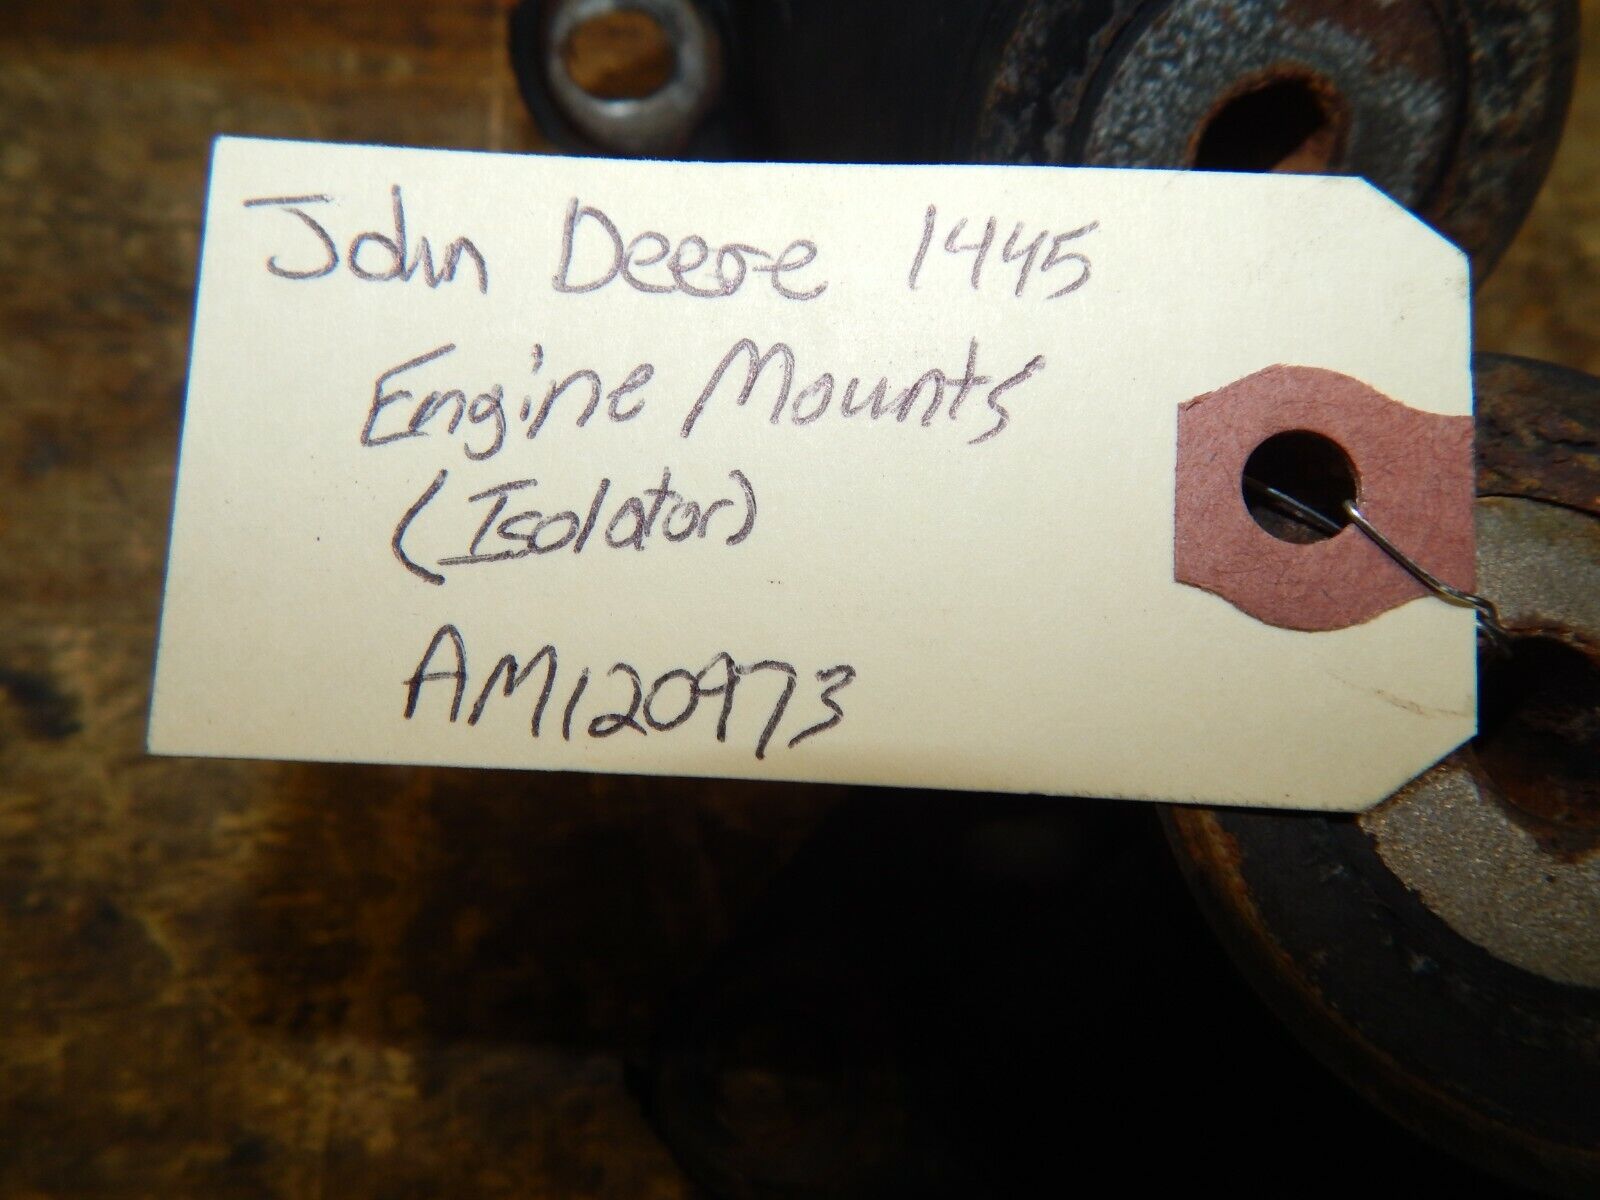 John Deere 1445
Engine Mounts
(Isolator)
AM120973